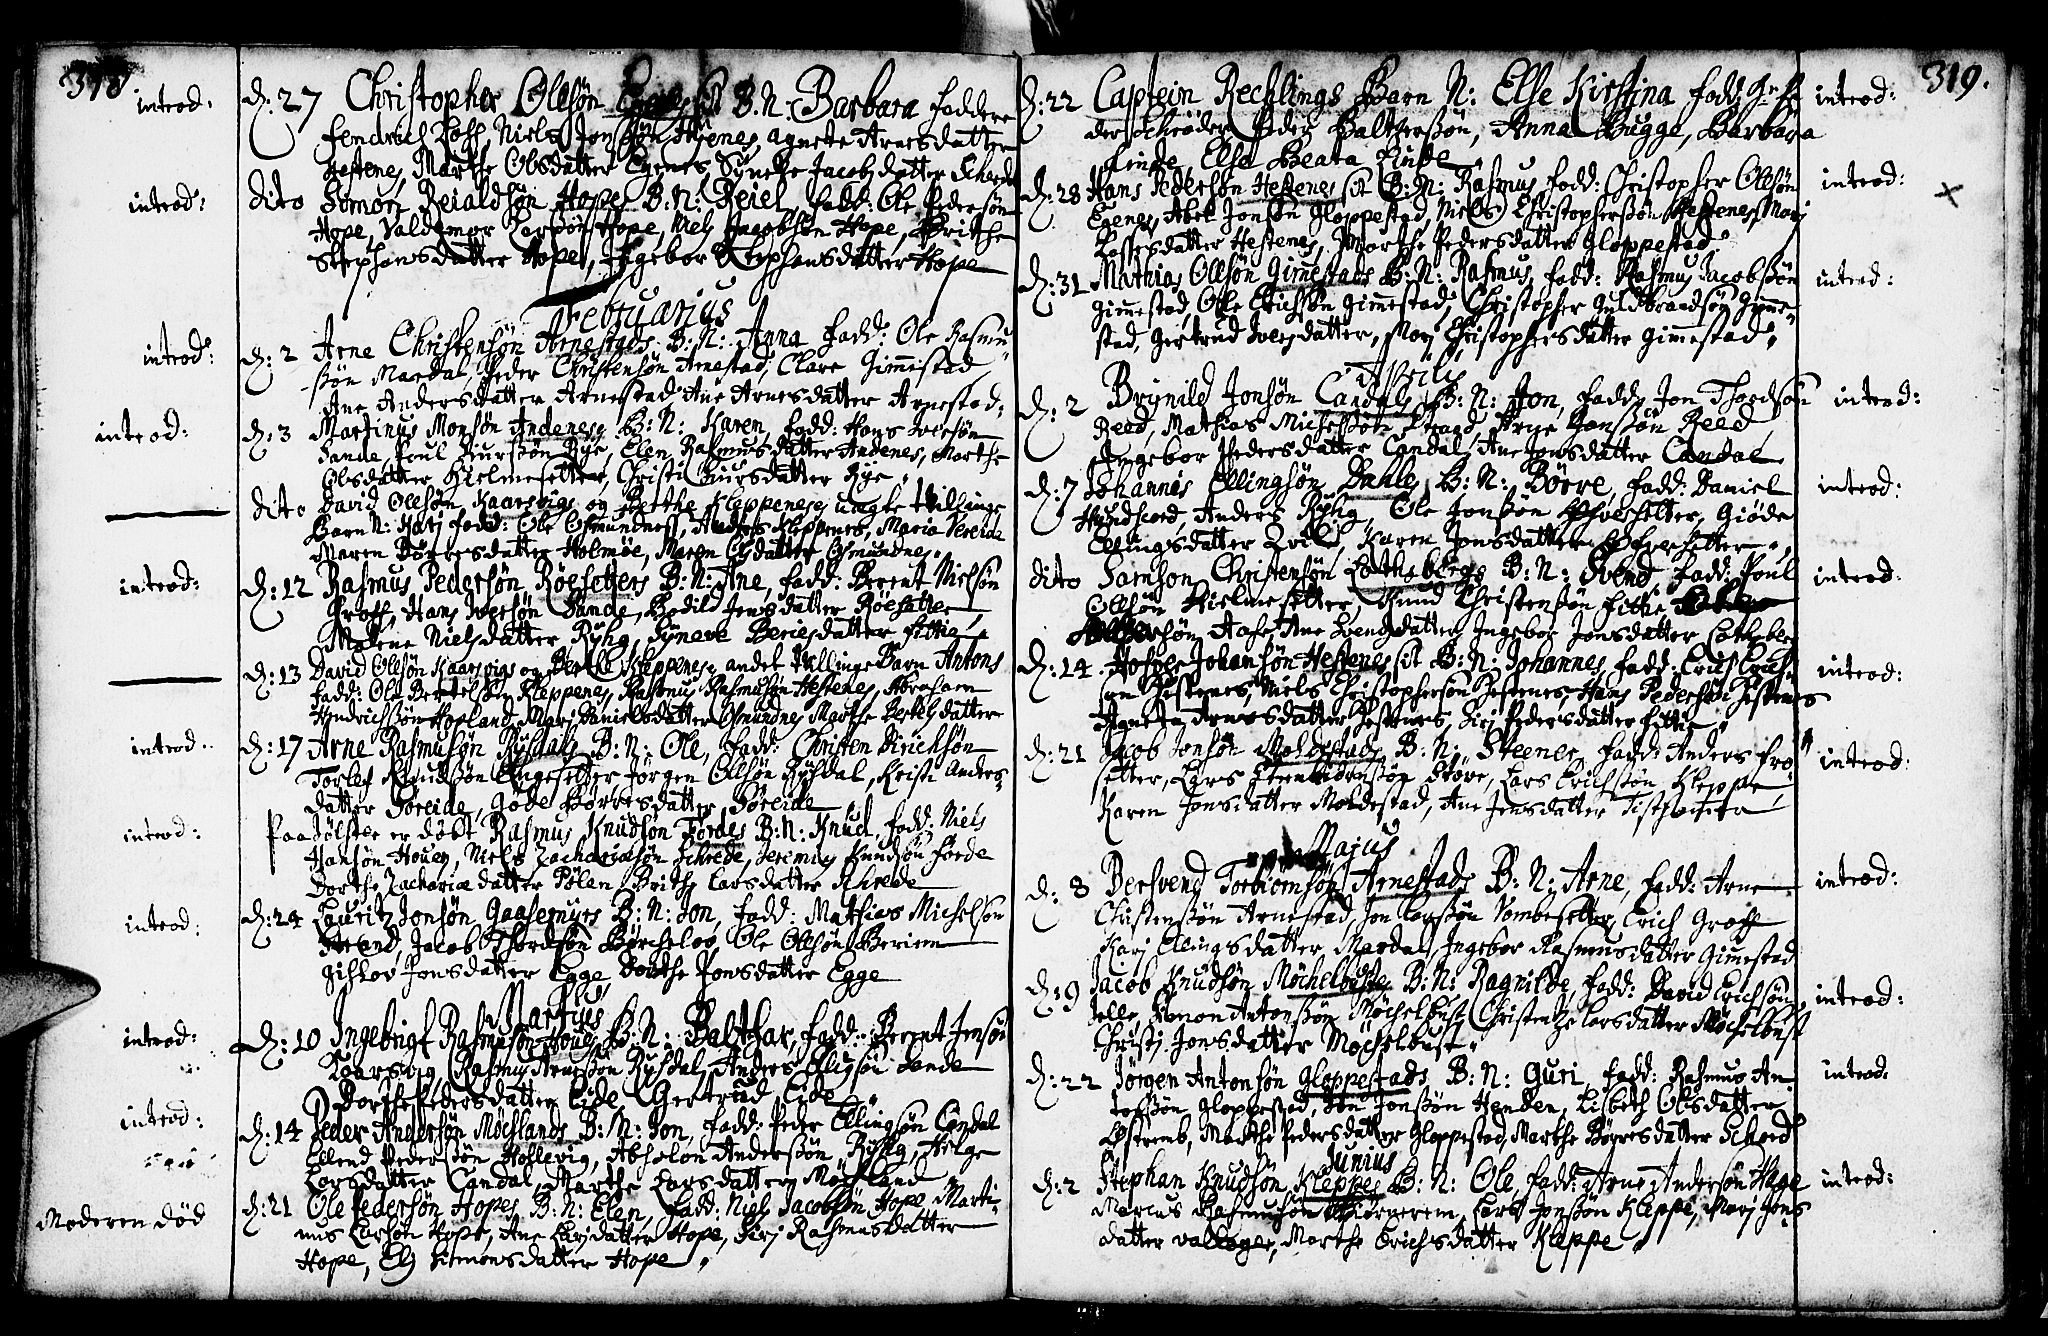 318
introd: d: 27 Christopher Ollsøn B. N. Barbara faddere
fendrich Niels Jonsøn agnete Arnesdatter
Hestenes, Marthe Olsdatter Egenes, Synche Jacobsdatter
introd: dito Simon Reialdsøn Hope B: N: Reiel, fadd: Ole Pedersøn
Hope, Valdemor Larsøn Hope, Niels Jacobsøn Hope, Brithe
Stephansdatter Hope, Ingebor Stephansdatter Hope
Februarius
introd: d: 2 Arne Christensøn Arnestads B: N: Anna fadd: Ole Rasmu-
søn Mardal, Peder Christensøn Arnestad, Clare Gimmestad
Ane Andersdatter Arnestad Ane Arnesdatter Arnestad.
introd: d: 3 Martinus Monsøn Andenes, B: N: Karen, fadd: Hans Iversøn
Sande, Poul Siursøn Rye, Elen Rasmusdatter Andenes, Marthe
Olsdatter Hielmesetter, Christi Siursdatter Rye
dito David Ollsøn Kaarsvigs og Berthe Kleppenes uægte tvillings
Barn N: Karj fadd: Ole Osmundnes, Anders Kleppenes, Maria Vereide
Maren Børresdatter Holmøe, Maren datter Osmundnes.
introd: d: 12 Rasmus Pedersøn Røesetters B: N: Ane, fadd: Berent Nielsøn
Groff, Hans Iversøn Sande, Bodild Jensdatter Røesetter
Malene Nielsdatter Ryhg, Synneve datter
d: 13 David Olsøn Kaarsvigs og Berthe Kleppenes andet tvillinge Barn Antons
fadd: Ole Bertelsøn Kleppenes, Rasmus Rasmusøn Hestenes, Abraham
Hendrichsøn Hopland, Marj Danielsdatter Osmundnes Marthe Bertelsdatter
introd: d: 17 Arne Rasmusøn Rysdals B: N: Ole, fadd: Christen Dirichsøn
Torlef Knudsøn Engesetter Jørgen Ollsøn Rysdal, Kristi Anders-
datter Søreide, Gøde Børresdatter Søreide
introd: Paa Jølster er døbt Rasmus Knudsøn Førdes B: N: Knud, fadd: Niels
Hansøn Houen, Niels Zachariasøn Schrede, Jeremias Knudsøn førde
Dorthe Zachariæ datter Pølen, Brithe Larsdatter Schrede
introd: d: 24 Lauritz Jonsøn Gaasemyrs B: N: Jon, fadd: Mathias Michelsøn
Strand, Jacob Thordsøn Børcheloe, Ole Ollsøn
Gislov Jonsdatter Egge, Dorthe Jonsdatter Egge
Martius
introd: d: 10 Ingebrigt Rasmusøn B: N: Balthar, fadd: Berent Jensøn
Kaarsvig, Rasmus Arnesøn Rysdal, Anders Ellingsøn Sande
Dorthe Pedersdatter Eide, Gertrud Eide
introd: d: 14 Peder Andersøn Mochlands B: N: Jon, fadd: Peder Ellingsøn Candal
Ellend Pedersøn Hollevig, Absolon Andersøn Ryhg, Helge
Larsdatter Candal, Marthe Larsdatter Mochland
Moderen død d: 21 Ole Pedersøn Hopes B: N: Elen, fadd: Niels Jacobsøn Hope, Marti-
nus Larsøn Hope, Ane Larsdatter Hope, Sirj Rasmusdatter
Hope, Elj Simonsdatter Hope
319.
d: 22 Captein Rechlings Barn N: Else Kirstina fadd: introd:
Peder Baltharsøn, Anna Bugge, Barbara
Linde, Else Beata Linde
d: 28 Hans Pedersøn Hestenes B: N: Rasmus fadd: Christopher Ollsøn introd: x
Egenes, Abel Jonsøn Gloppestad, Niels Christophersøn Hestenes, Marj
Lassesdatter Hestenes, Marthe Pedersdatter Gloppestad
d: 31 Mathias Ollsøn Gimestads B: N: Rasmus, fadd: Rasmus Jacobsøn introd:
Gimestad, Ole Erichsøn Gimestad, Christopher Guldbrandsøn Gimme-
stad, Gertrud Iversdatter, Marj Christophersdatter Gimestad
Aprilis
d: 2 Brynild Jonsøn Candals B: N: Jon, fadd: Jon Thordsøn introd:
Reed, Mathias Michelsøn Strand Arne Hansøn Reed
Ingebor Pedersdatter Candal, Ane Jonsdatter Candal
d: 7 Johannes Ellingsøn Dahle, B: N: Børre, fadd: Daniel introd:
Hundscord, Anders Ryhg, Ole Jonsøn Giøde
Ellingsdatter Qvile, Karen Jonsdatter
dito Samson Christensøn Lothebergs B: N: Svend, fadd: Poul introd:
Ollsøn Hielmesetter, Knud Christensøn
Aase, Ane Svendsdatter, Ingebor Jonsdatter Lotheberg
d: 14 Johansøn Hestenes B: N: Johannes, fadd: Erich Erich- introd:
søn Hestenes, Niels Christophersøn Hestenes, Hans Pedersøn Hestenes
Agneta Arnesdatter Hestenes, Sirj Pedersdatter
d: 21 Jacob Jonsøn Moldestads B: N: Steener, fadd: Anders Frø- introd:
setter, Lars Støre, Lars Erichsøn Kleppe
Karen Jonsdatter Moldestad, Ane Jensdatter
Majus
d: 3 Bersvend Torbiørnsøn Arnestads B: N: Arne, fadd: Arne introd:
Christensøn Arnestad, Jon Larsøn Vombesetter, Erich Groff
Karj Ellingsdatter Mardal, Ingebor Rasmusdatter Gimestad
d: 9 Jacob Knudsøn Møchelbuste B: N: Ragnilde, fadd: David Erichsøn introd:
Simon Antonsøn Møchelbust Christentze Larsdatter Møchelbust
Christj Jonsdatter Møchelbust
d: 22 Jørgen Antonsøn Gloppestads B: N: Guri, fadd: Rasmus An- introd:
tonsøn Gloppestad, Jon Jonsøn Henden, Lisbeth Olsdatter
Marthe Pedersdatter Gloppestad, Marthe Børresdatter
Junius
d: 2 Stephan Knudsøn Kleppes B: N: Ole, fadd: Arne Andersøn Hage introd:
Marcus Rasmusøn Lars Jonsøn Kleppe, Marj Jons-
datter Marthe Erichsdatter Kleppe